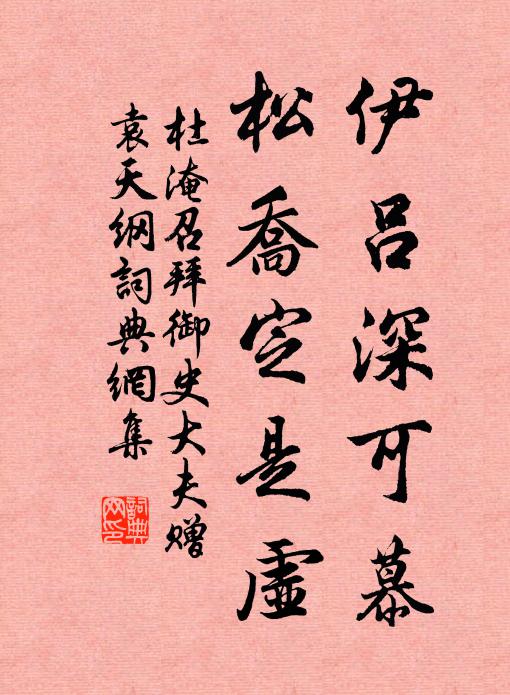 伊呂深可慕
松喬定是虛
杜淹召拜御史大夫贈
袁天綱詞典網集
詞典
网印